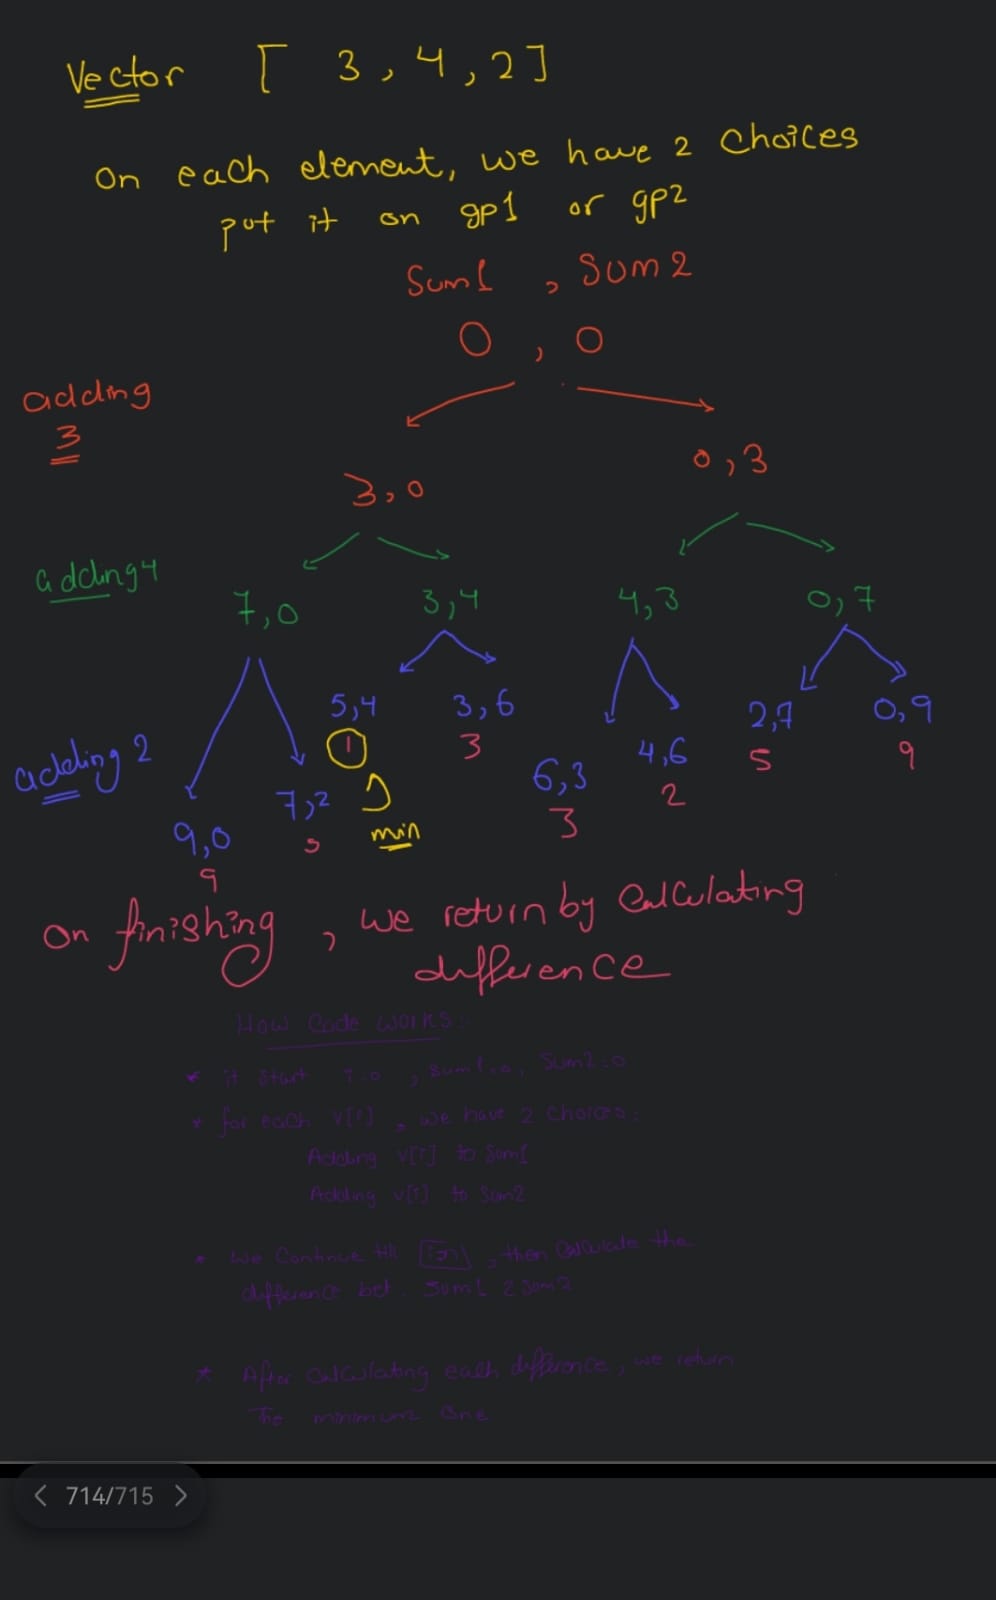 Vector [ 3, 4, 2]
On each element, we have 2 choices
put it on gp1 or gp2
Sum1 , Sum2
0 , 0
adding
3
3,0
0,3
adding 4
7,0
3,4
4,3
0,7
adding 2
9,0
9
7,2
5
5,4
1
min
3,6
3
6,3
3
4,6
2
2,7
5
0,9
9
On finishing , we return by calculating
difference
How Code works:
* it start i=0 , sum1=0, sum2=0
* for each v[i] , we have 2 choices:
Adding v[i] to sum1
Adding v[i] to sum2
* We Continue till i=n , then calculate the
difference bet. sum1 & sum2
* After calculating each difference, we return
The minimum one
< 714/715 >